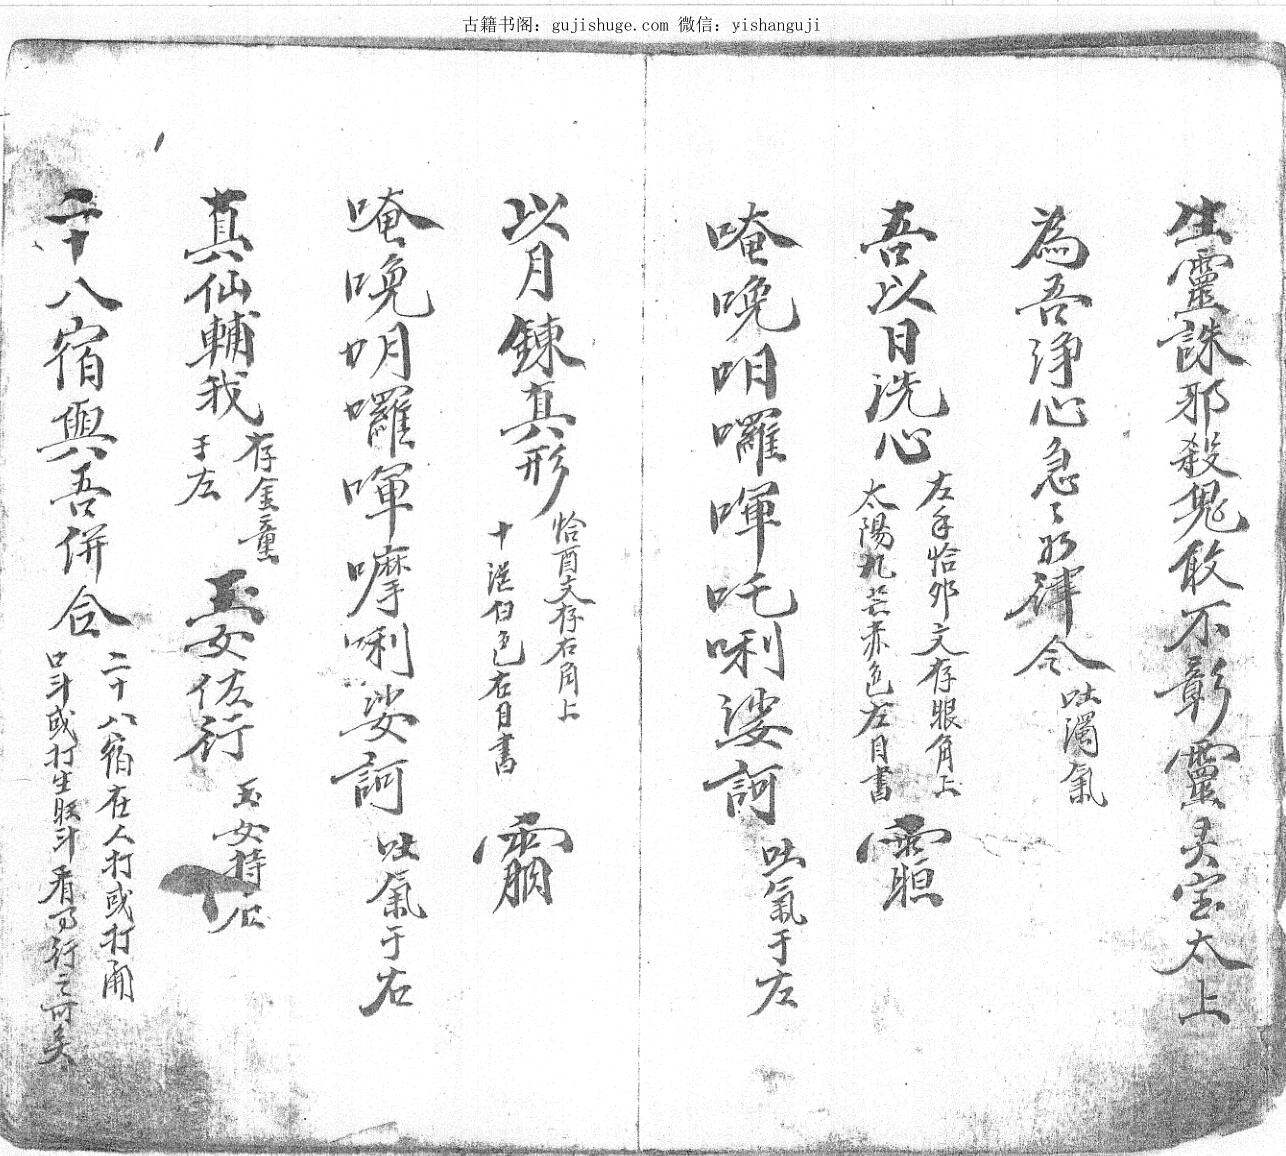 古籍书阁：gujishuge.com 微信：yishanguji
生靈誅邪殺鬼敢不彰靈灵宝太上
為吾浄心急〻如律令吐濁氣
吾以日洗心左手恰卯文存眼角上
太陽九芒赤色左目書
唵晚呐囉㖸吒唎娑訶吐氣于左
以月鍊真形恰酉文存右角上
十芒白色右目書
唵晚明囉㖸嚤唎娑訶吐氣于右
真仙輔我存金童
于左
玉女佐行玉女持
二十八宿與吾併合二十八宿在人打或打
斗或打生斗看行之可矣